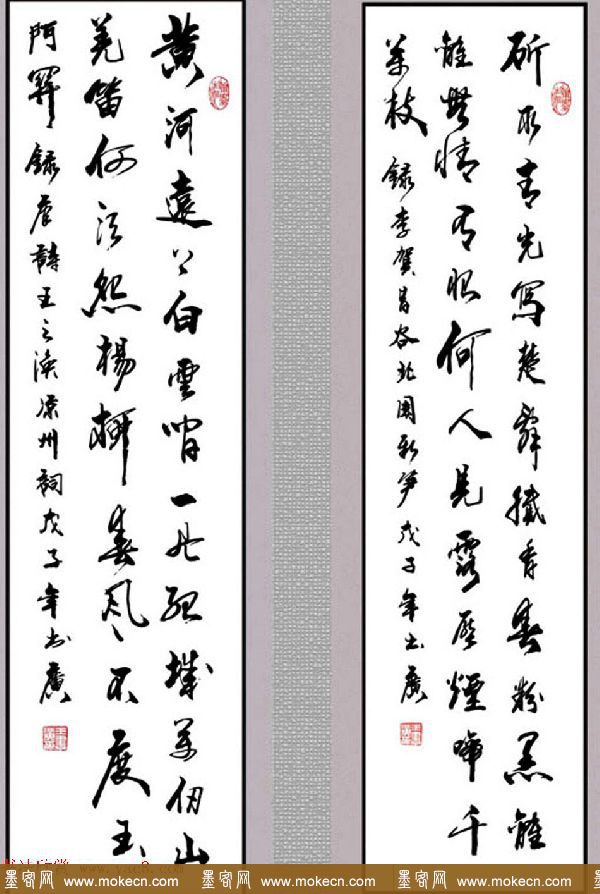 斫取青光寫楚辭膩香春粉黑離
離無情有恨何人見露壓煙啼千
萬枝 錄李賀昌谷北園新笋戊子年書廣
黃河遠上白雲間一片孤城萬仞山
羌笛何須怨楊柳春風不度玉
門關 錄唐詩王之渙涼州詞戊子年書廣
墨客网 www.mokecn.com 墨客网 www.mokecn.com 墨客网 www.mokecn.com